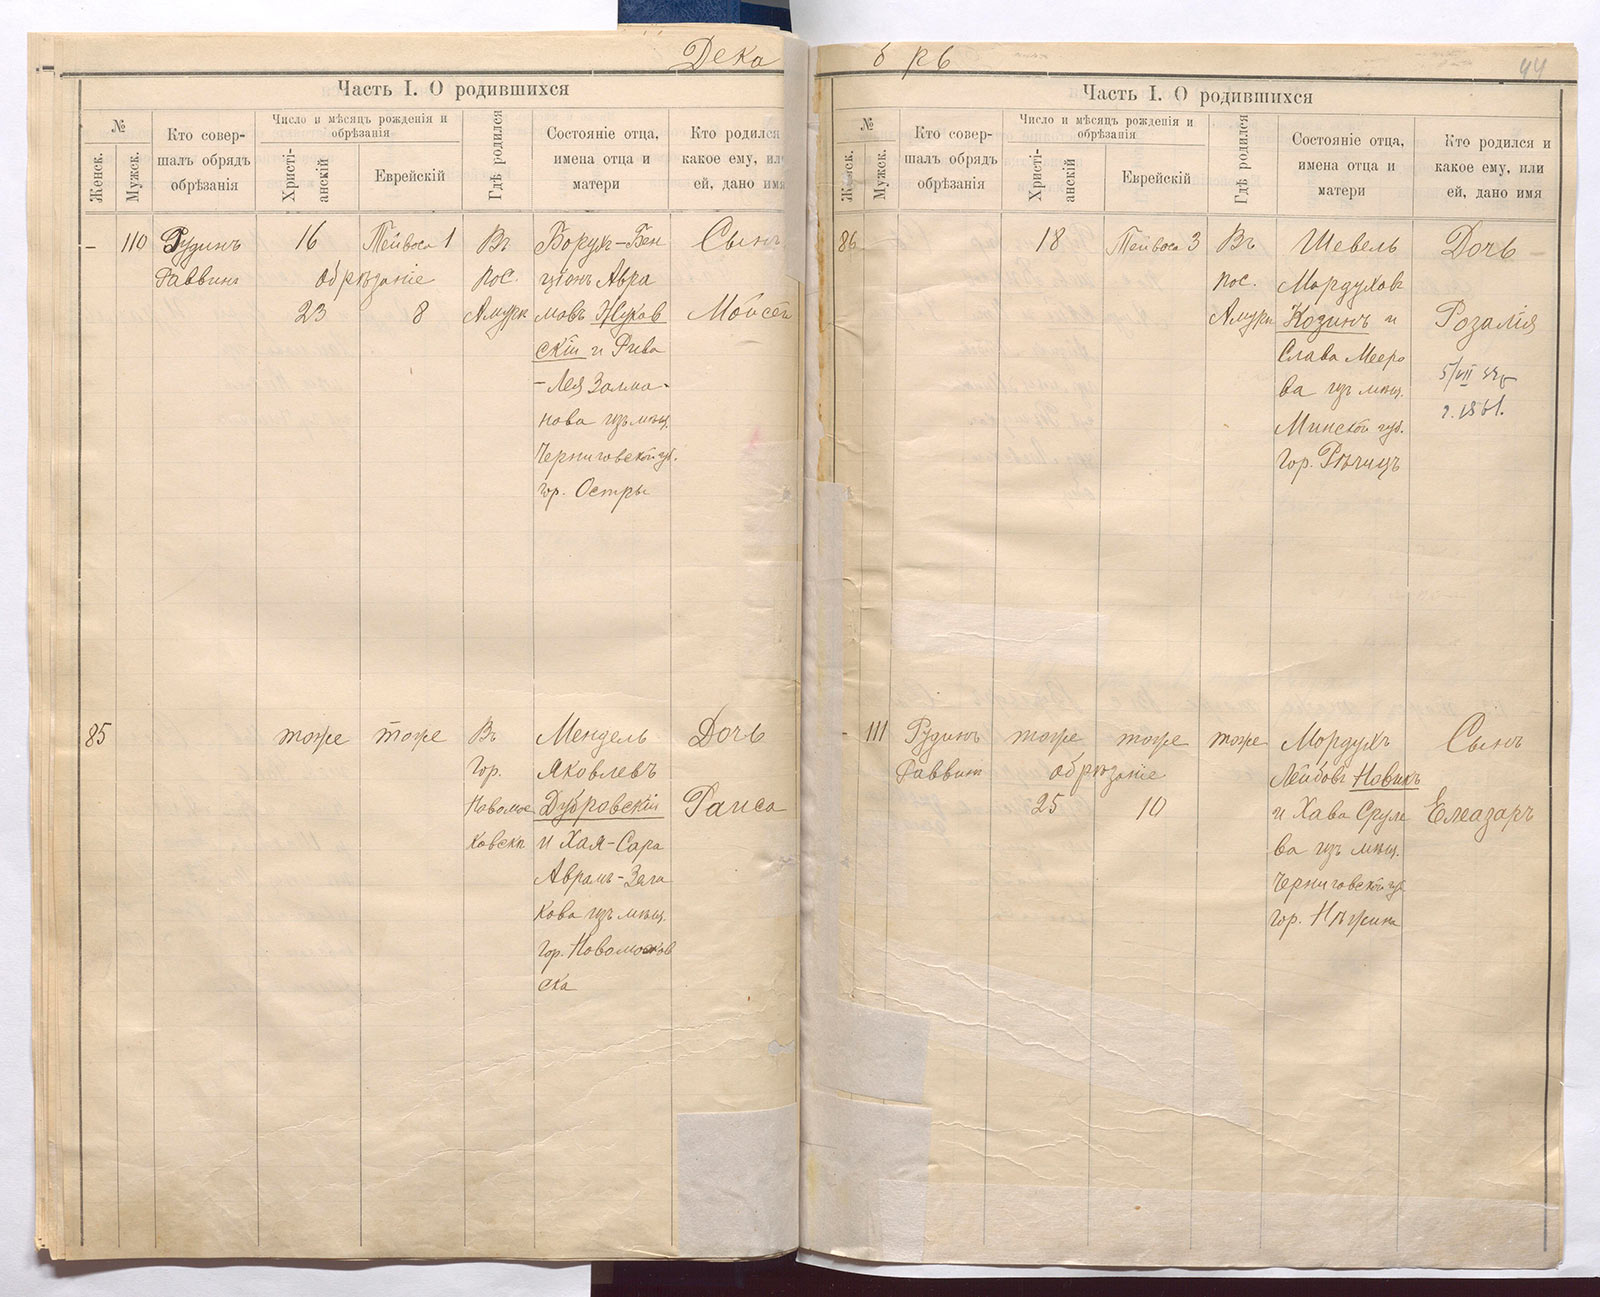 Дека
Часть I. О родившихся
№
Женск.
Мужск.
Кто совер-
шалъ обрядъ
обрѣзанія
Число и мѣсяцъ рожденія и
обрѣзанія
Христі-
анскій
Еврейскій
Гдѣ родился
Состояніе отца,
имена отца и
матери
Кто родился
какое ему, или
ей, дано имя
–
110
Рудинъ
Раввинъ
16
Тейвоса 1
обрѣзаніе
23
8
Въ
пос.
Амуръ
Борухъ-Бен
ціонъ Авра
мовъ Жуков
скій и Рива
-Лея Залма-
нова изъ мѣщ.
Черниговской губ.
гор. Остры
Сынъ
Моисей
85
тоже
тоже
Въ
гор.
Новомос
ковскъ
Мендель
Яковлевъ
Дубровскій
и Хая-Сара
Аврамъ-Зели
кова изъ мѣщ.
гор. Новомосков
ска
Дочь
Раиса
брь
44
Часть I. О родившихся
№
Женск.
Мужск.
Кто совер-
шалъ обрядъ
обрѣзанія
Число и мѣсяцъ рожденія и
обрѣзанія
Христі-
анскій
Еврейскій
Гдѣ родился
Состояніе отца,
имена отца и
матери
Кто родился и
какое ему, или
ей, дано имя
86
18
Тейвоса 3
Въ
пос.
Амуръ
Шевель
Мордуховъ
Козинъ и
Слава Мееро
ва изъ мѣщ.
Минской губ.
гор. Рѣчицъ
Дочь
Розалія
5/VII
-
111
Рудинъ
Раввинъ
тоже
тоже
обрѣзаніе
25
10
тоже
Мордухъ
Лейбовъ Новикъ
и Хава Сруле
ва изъ мѣщ.
Черниговской губ
гор. Нѣжина
Сынъ
Елеазаръ